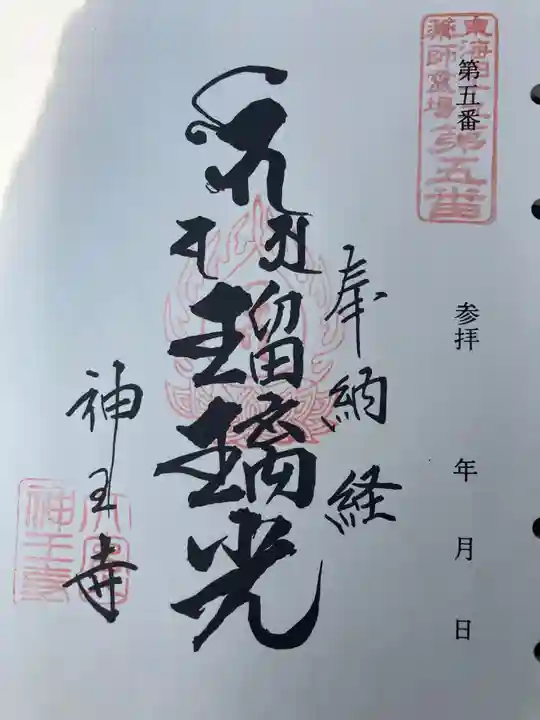 東海四十九
薬師霊場第五番
第五番
参拝 年 月 日
奉納経
瑠璃光
神王寺
神王寺